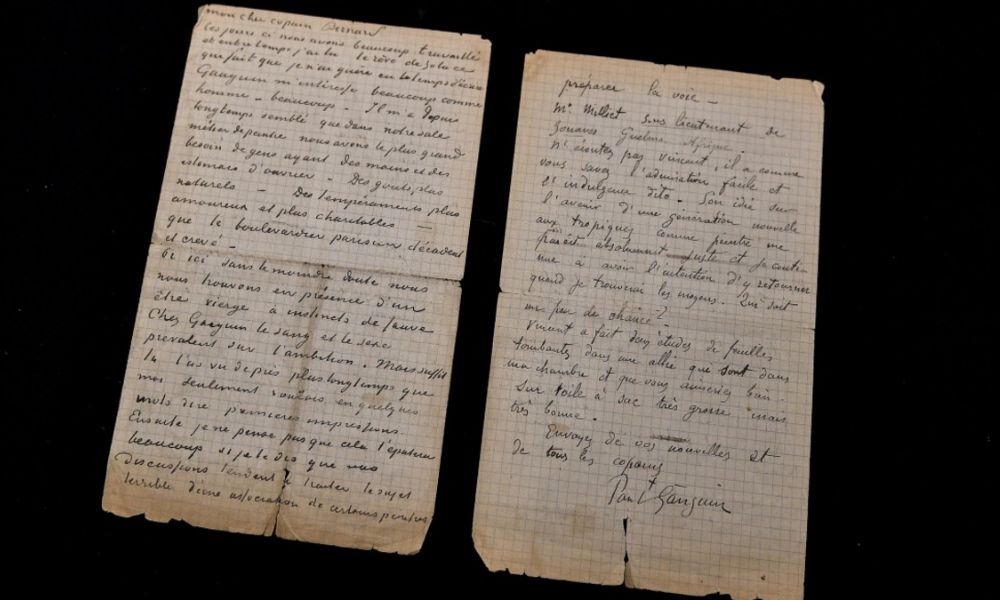 mon cher copain Bernard
Ces jours ci nous avons beaucoup travaillé
et entretemps j'ai lu le rêve de Zola ce
qui fait que je n'ai guère eu le temps d'écrire
Gauguin m'intéresse beaucoup comme
homme – beaucoup – Il m'a depuis
longtemps semblé que dans notre sale
métier de peintre nous avons le plus grand
besoin de gens ayant des mains et des
estomacs d'ouvrier – Des gouts plus
naturels – Des tempéraments plus
amoureux et plus charitables –
que le boulevardier parisien décadent
et crevé –
Or ici sans le moindre doute nous
nous trouvons en présence d'un
être vierge à instincts de sauvage
Chez Gauguin le sang et le sexe
prévalent sur l'ambition. Mais suffit
tu l'as vu de près plus longtemps que
moi seulement voulais en quelques
mots dire premières impressions
Ensuite je ne pense pas que cela t'épatera
beaucoup si je te dis que nos
discussions tendent à traiter le sujet
terrible d'une association de certains peintres
préparer la voie –
Mr Milliet sous lieutenant de
Zouaves Guelma Afrique.
N'écoutez pas Vincent, il a comme
vous savez l'admiration facile et
l'indulgence dito. Son idée sur
l'avenir d'une génération nouvelle
aux tropiques comme peintre me
parait absolument juste et je contin
nue à avoir l'intention d'y retourner
quand je trouverai les moyens. Qui sait
un peu de chance?
Vincent a fait deux études de feuilles
tombantes dans une allée qui sont dans
ma chambre et que vous aimeriez bien
Sur toile à sac très grosse mais
très bonne.
Envoyez de vos nouvelles et
de tous les copains
Paul Gauguin